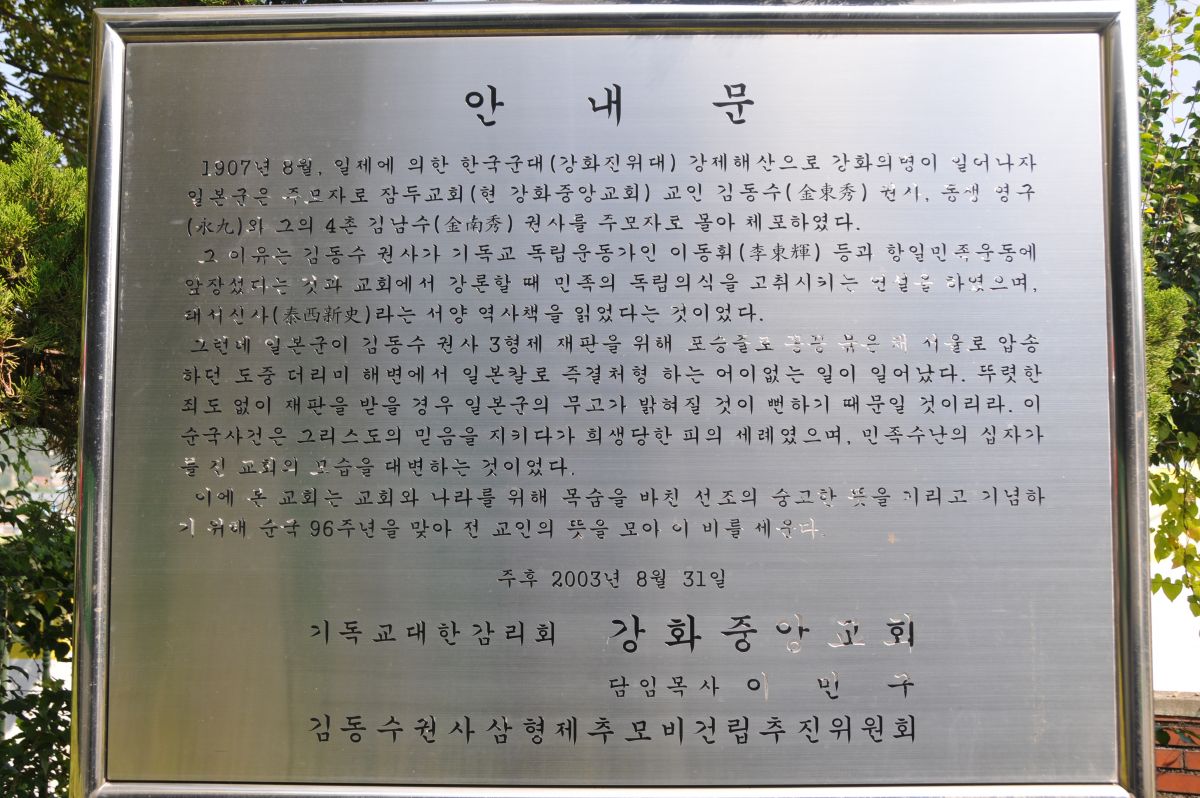 안 내 문
1907년 8월, 일제에 의한 한국군대(강화진위대) 강제해산으로 강화의병이 일어나자
일본군은 주모자로 잠두교회(현 강화중앙교회) 교인 김동수(金東秀) 권사, 동생 영구
(永九)와 그의 4촌 김남수(金南秀) 권사를 주모자로 몰아 체포하였다.
그 이유는 김동수 권사가 기독교 독립운동가인 이동휘(李東輝) 등과 항일민족운동에
앞장섰다는 것과 교회에서 강론할 때 민족의 독립의식을 고취시키는 연설을 하였으며,
태서신사(泰西新史)라는 서양 역사책을 읽었다는 것이었다.
그런데 일본군이 김동수 권사 3형제 재판을 위해 포승줄로 꽁꽁 묶은 채 서울로 압송
하던 도중 더리미 해변에서 일본칼로 즉결처형 하는 어이없는 일이 일어났다. 뚜렷한
죄도 없이 재판을 받을 경우 일본군의 무고가 밝혀질 것이 뻔하기 때문일 것이리라. 이
순국사건은 그리스도의 믿음을 지키다가 희생당한 피의 세례였으며, 민족수난의 십자가
를 진 교회의 모습을 대변하는 것이었다.
이에 본 교회는 교회와 나라를 위해 목숨을 바친 선조의 숭고한 뜻을 기리고 기념하
기 위해 순국 96주년을 맞아 전 교인의 뜻을 모아 이 비를 세운다.
주후 2003년 8월 31일
기독교대한감리회 강화중앙교회
담임목사 이 민 구
김동수권사삼형제추모비건립추진위원회